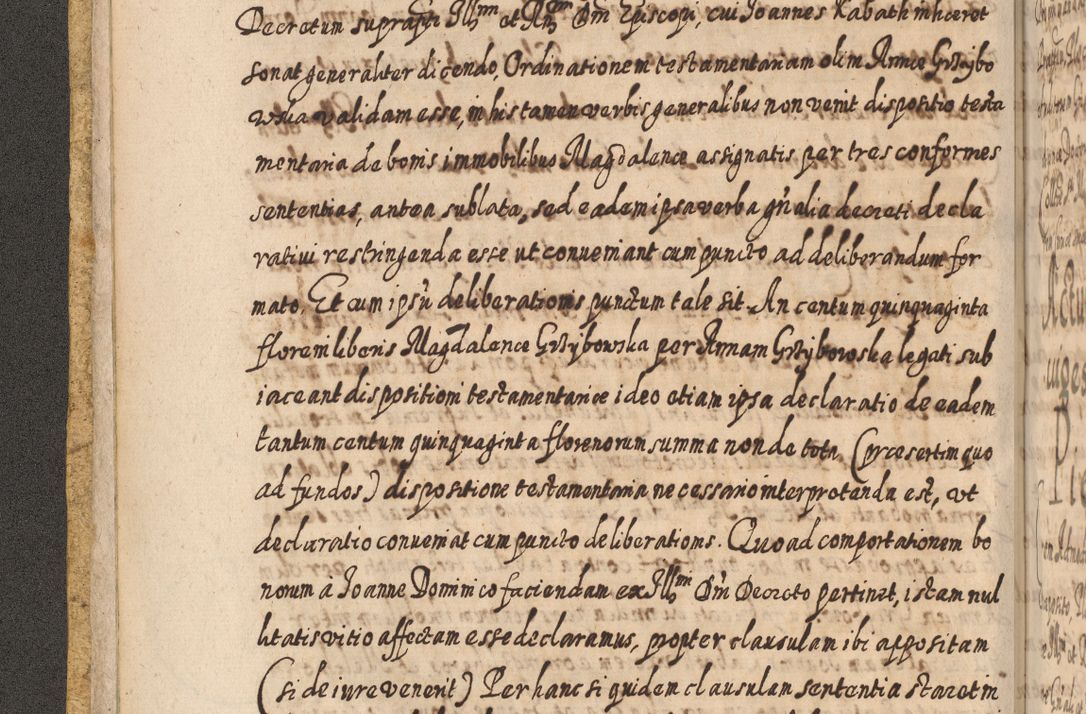 Decretum suprapti Illmi et Rmi Dni Episcopi, cui Joannes Kabath inhæret
sonat generaliter dicendo, Ordinationem testamentariam olim Annæ Grzybo
wska validam esse, in his tamen verbis generalibus non venit dispositio testa
mentaria de bonis immobilibus Magdalenæ assignatis per tres conformes
sententias, antea sublata, sed eadem ipsa verba gnalia decreti decla
rativi restringenda esse ut conveniant cum puncto ad deliberandum for
mato. Et cum ipsu deliberationis punctum tale sit. An centum quinquaginta
floreni liberis Magdalenæ Grzybowska per Annam Grzybowska legati sub
iaceant dispositioni testamentariæ ideo etiam ipsa declaratio de eadem
tantum centum quinquaginta florenorum summa non de tota (præsertim quo
ad fundos) dispositione testamentaria necessario interpretanda est, ut
declaratio conveniat cum puncto deliberationis. Quoad comportationem bo
norum à Joanne Dominico faciendam ex Illmi Dni Decreto pertinet, istam nul
litatis vitio affectam esse declaramus, propter clausulam ibi appositam
(si de iure venerit) Per hanc siquidem clausulam sententia staret in